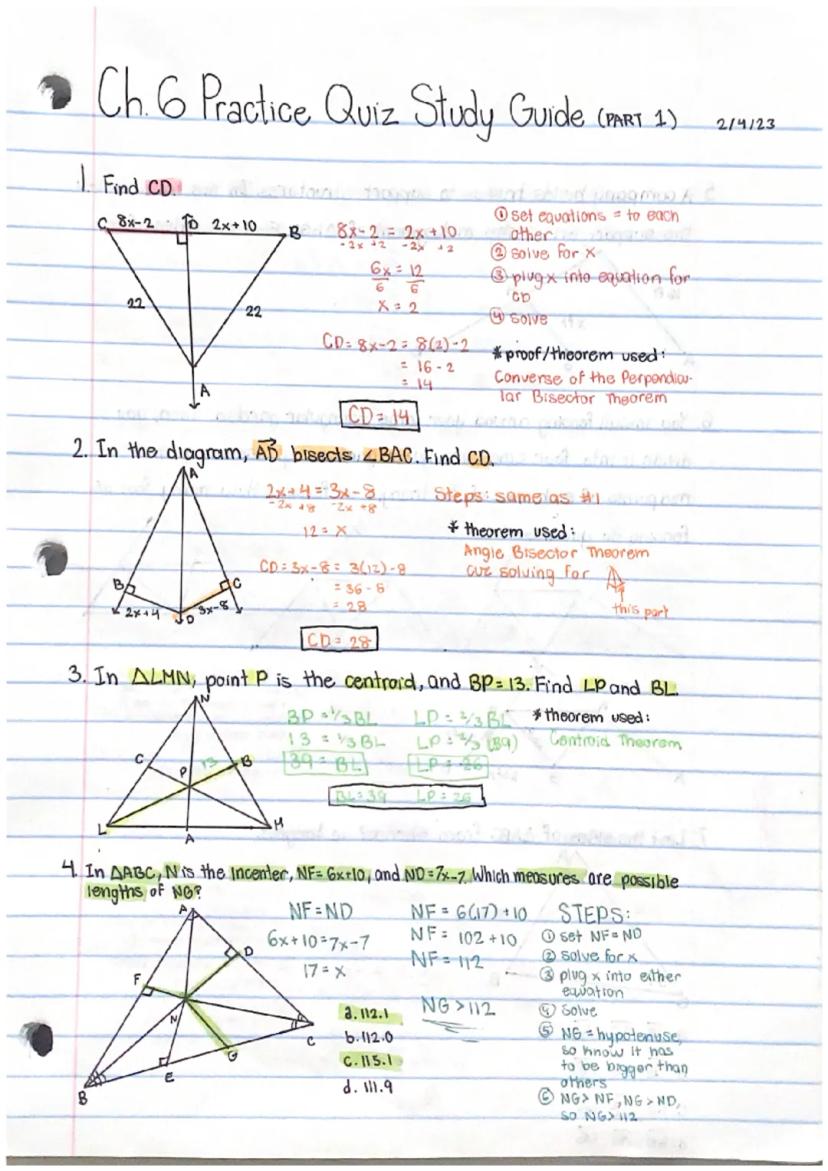 Ch. 6 Practice Quiz Study Guide (PART 1) 2/4/23
1. Find CD.
C 8x-2 D 2x+10 B
22 22
A
8x-2 = 2x+10
-2x +2 -2x +2
6x = 12
6 6
x = 2
CD = 8x-2 = 8(2)-2
= 16-2
= 14
CD = 14
① set equations = to each
other
② solve for x
③ plug x into equation for
CD
④ solve
* proof/theorem used:
Converse of the Perpendicu-
lar Bisector Theorem
2. In the diagram, AD bisects ∠BAC. Find CD.
A
B C
2x+4 D 3x-8
2x+4 = 3x-8
-2x +8 -2x +8
12 = x
CD = 3x-8 = 3(12)-8
= 36-8
= 28
CD = 28
Steps: same as #1
* theorem used:
Angle Bisector Theorem
cuz solving for
this part
3. In △LMN, point P is the centroid, and BP = 13. Find LP and BL.
N
C 13 B
P
L A M
BP = 1/3 BL
13 = 1/3 BL
39 = BL
LP = 2/3 BL
LP = 2/3 (39)
LP = 26
BL = 39 LP = 26
* theorem used:
Centroid Theorem
4. In △ABC, N is the incenter, NF = 6x+10, and ND = 7x-7. Which measures are possible
lengths of NG?
A
D
F
N
C
G
E
B
NF = ND
6x+10 = 7x-7
17 = x
NF = 6(17)+10
NF = 102+10
NF = 112
NG > 112
a. 112.1
b. 112.0
c. 115.1
d. 111.9
STEPS:
① set NF = ND
② solve for x
③ plug x into either
equation
④ Solve
⑤ NG = hypotenuse,
so know it has
to be bigger than
others
⑥ NG > NF, NG > ND,
so NG > 112